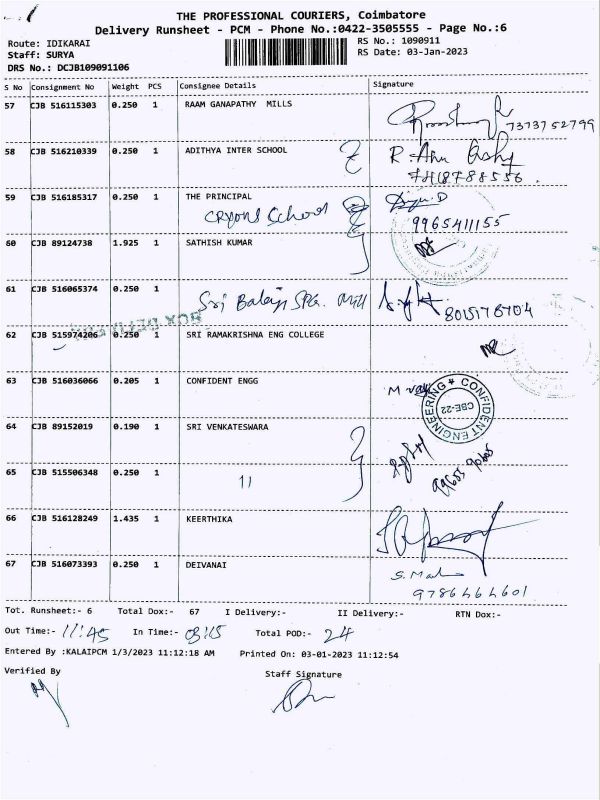 THE PROFESSIONAL COURIERS, Coimbatore
Delivery Runsheet - PCM - Phone No.:0422-3505555 - Page No.:6
Route: IDIKARAI
RS No.: 1090911
Staff: SURYA
RS Date: 03-Jan-2023
DRS No.: DCJB109091106
S No Consignment No Weight PCS Consignee Details Signature
57 CJB 516115303 0.250 1 RAAM GANAPATHY MILLS
7373752799
58 CJB 516210339 0.250 1 ADITHYA INTER SCHOOL
7418788556.
59 CJB 516185317 0.250 1 THE PRINCIPAL
School
9965411155
60 CJB 89124738 1.925 1 SATHISH KUMAR
61 CJB 516065374 0.250 1
Sri Balaji SPG. Mill
BOX DELIVERY
62 CJB 515974206 0.250 1 SRI RAMAKRISHNA ENG COLLEGE
63 CJB 516036066 0.205 1 CONFIDENT ENGG
CONFIDENT ENGINEERING
CBE-22
64 CJB 89152019 0.190 1 SRI VENKATESWARA
65 CJB 515506348 0.250 1
11
66 CJB 516128249 1.435 1 KEERTHIKA
67 CJB 516073393 0.250 1 DEIVANAI
Tot. Runsheet:- 6 Total Dox:- 67 I Delivery:- II Delivery:- RTN Dox:-
Out Time:- 11:45 In Time:- 03:15 Total POD:- 24
Entered By :KALAIPCM 1/3/2023 11:12:18 AM Printed On: 03-01-2023 11:12:54
Verified By
Staff Signature